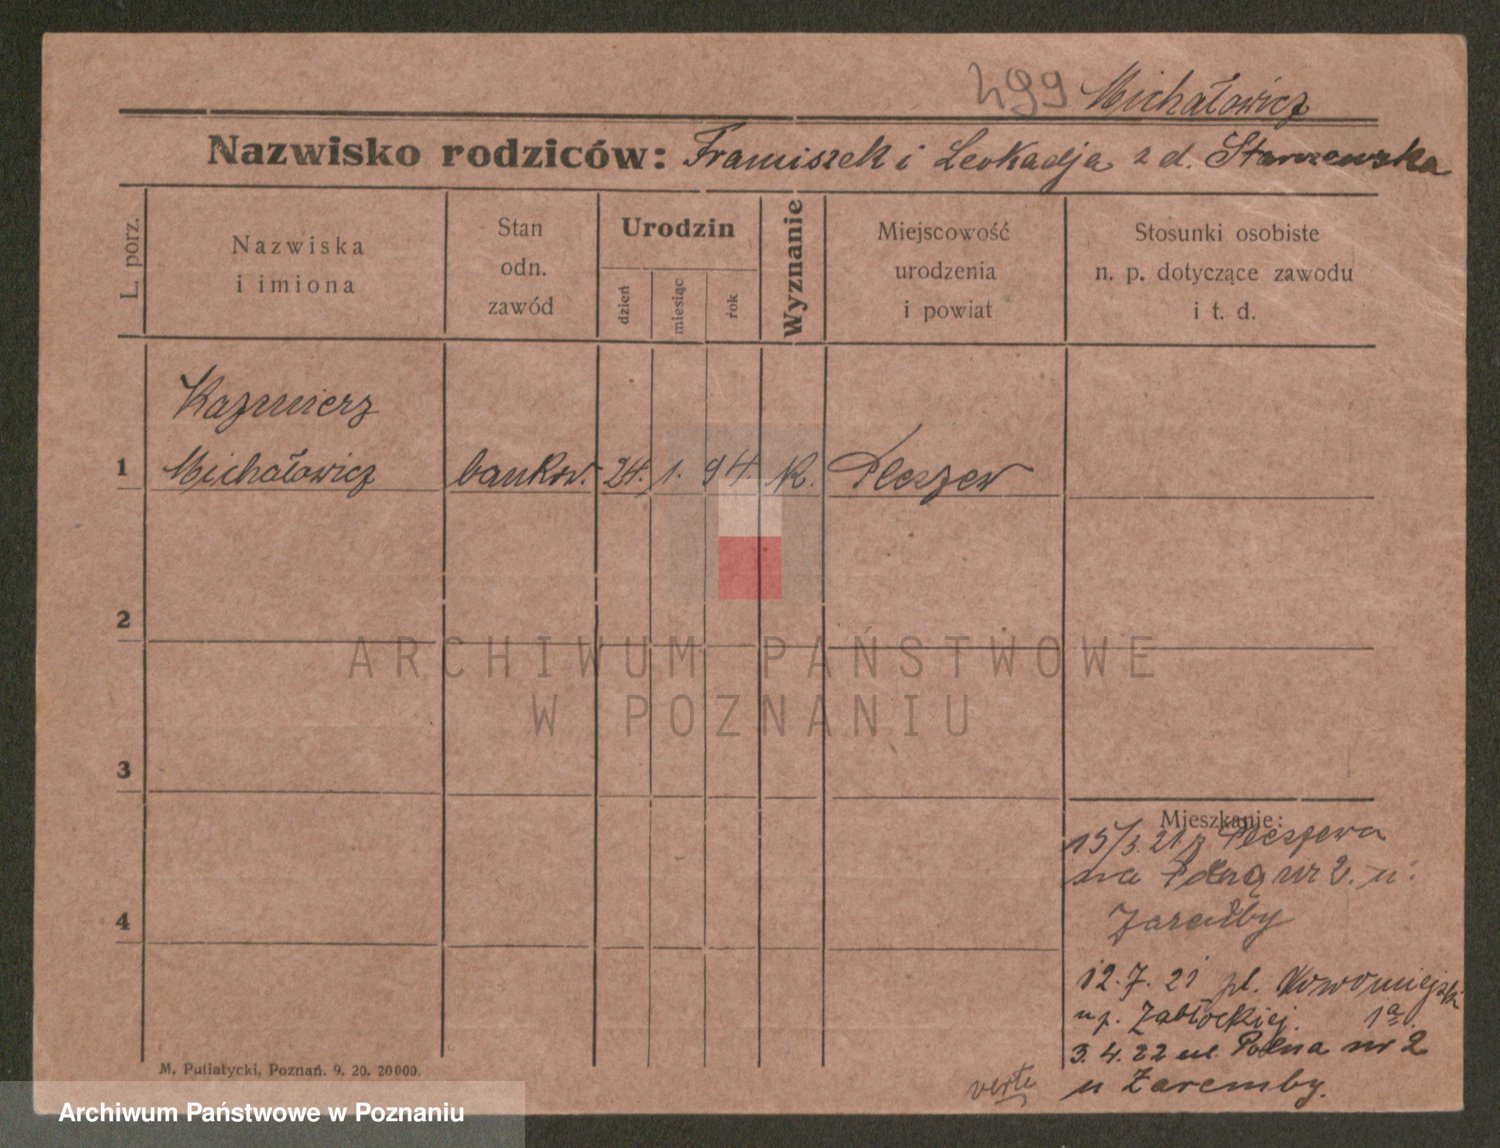 499 Michałowicz
Nazwisko rodziców: Franciszek i Leokadja z d. Starzewska
L. porz.
Nazwiska
i imiona
Stan
odn.
zawód
Urodzin
dzień
miesiąc
rok
Wyznanie
Miejscowość
urodzenia
i powiat
Stosunki osobiste
n. p. dotyczące zawodu
i t. d.
Kazimierz
1 Michałowicz bankow. 24. 1. 94. K. Pleszew
2
ARCHIWUM PAŃSTWOWE
W POZNANIU
3
Mieszkanie:
15/3. 21 z Pleszewa
na Polną nr 2. u
Zaremby
4
12.7.21 pl. Nowomiejski
u p. Zabłockiej. 1a.
3.4.22 ul. Polna nr 2
u Zaremby.
verte
M. Putiatycki, Poznań. 9. 20. 20000.
Archiwum Państwowe w Poznaniu